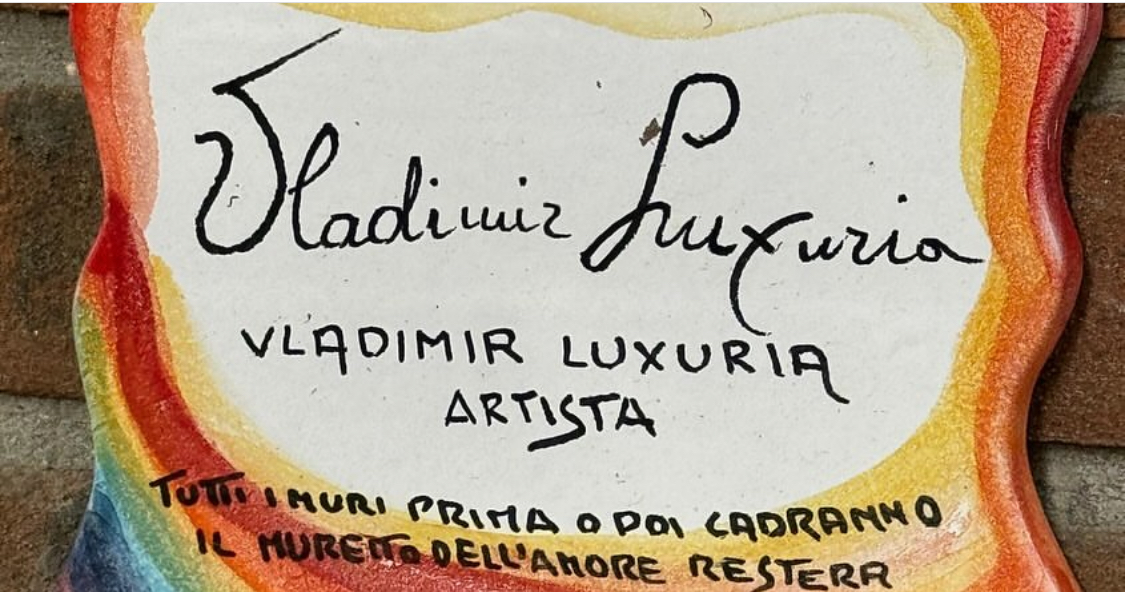 Vladimir Luxuria
VLADIMIR LUXURIA
ARTISTA
TUTTI I MURI PRIMA O POI CADRANNO
IL MURETTO DELL'AMORE RESTERA